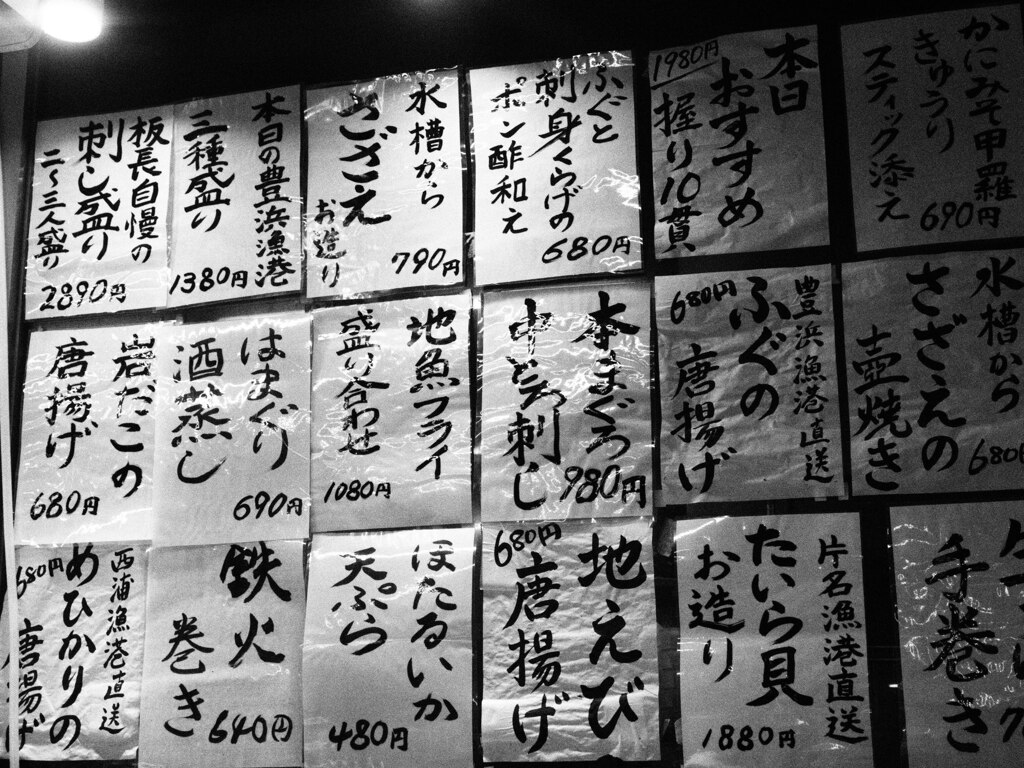 かにみそ甲羅
きゅうり
スティック添え
690円
本日
おすすめ
握り10貫
1980円
ふぐと
刺身くらげの
ポン酢和え
680円
水槽から
さざえ
お造り
790円
本日の豊浜漁港
三種盛り
1380円
板長自慢の
刺し盛り
二〜三人盛り
2890円
水槽から
さざえの
壺焼き
680
豊浜漁港直送
ふぐの
唐揚げ
680円
本まぐろ
中とろ刺し
980円
地魚フライ
盛り合わせ
1080円
はまぐり
酒蒸し
690円
岩だこの
唐揚げ
680円
手巻き
片名漁港直送
たいら貝
お造り
1880円
地えび
唐揚げ
680円
ほたるいか
天ぷら
480円
鉄火
巻き
640円
西浦漁港直送
めひかりの
唐揚げ
680円